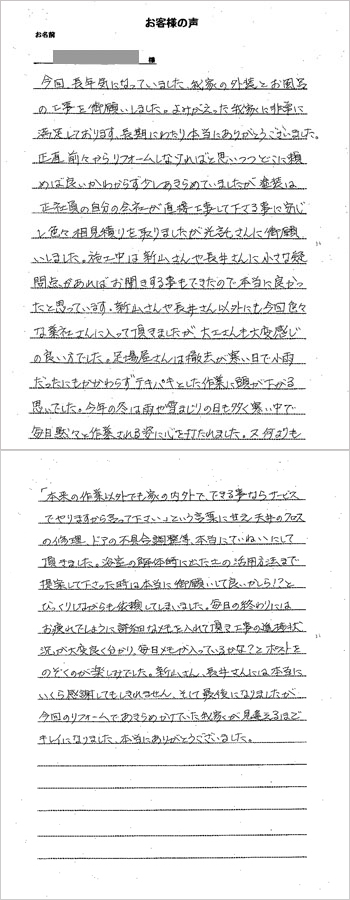 お客様の声
お名前
様
今回、長年気になっていました、我家の外装とお風呂
の工事を御願いしました。よみがえった我家に非常に
満足しております。長期にわたり本当にありがとうございました。
正直、前々からリフォームしなければと思いつつどこに頼
めば良いかわからず少しあきらめていましたが塗装は
正社員の自分の会社が直接工事して下さる事に安心
し色々相見積りを取りましたが光託さんに御願
いしました。施工中は新山さんや長井さんに小さな疑
問点があればお聞きする事もできたので本当に良かっ
たと思っています。新山さんや長井さん以外にも今回色々
な業社さんに入って頂きましたが、大工さんも大変感じ
の良い方でした。足場屋さんは撤去が寒い日で小雨
だったにもかかわらずテキパキとした作業に頭が下がる
思いでした。今年の冬は雨や雪まじりの日も多く寒い中で
毎日黙々と作業される姿に心を打たれました。又何よりも
「本来の作業以外でも家の内外で、できる事ならサービス
でやりますから言って下さい」という言葉に甘え天井のクロス
の修理、ドアの不具合調整等、本当にていねいにして
頂きました。浴室の解体時に出た土の活用方法まで
提案して下さった時は本当に御願いして良いかしら!?と
びっくりしながらも依頼してしまいました。毎日の終わりには
お疲れでしょうに詳細なメモを入れて頂き工事の進捗状
況が大変良く分かり、毎日メモが入っているかな?とポストを
のぞくのが楽しみでした。新山さん、長井さんには本当に
いくら感謝してもしきれません。そして最後になりましたが
今回のリフォームであきらめかけていた我家が見違えるほど
キレイになりました、本当にありがとうございました。